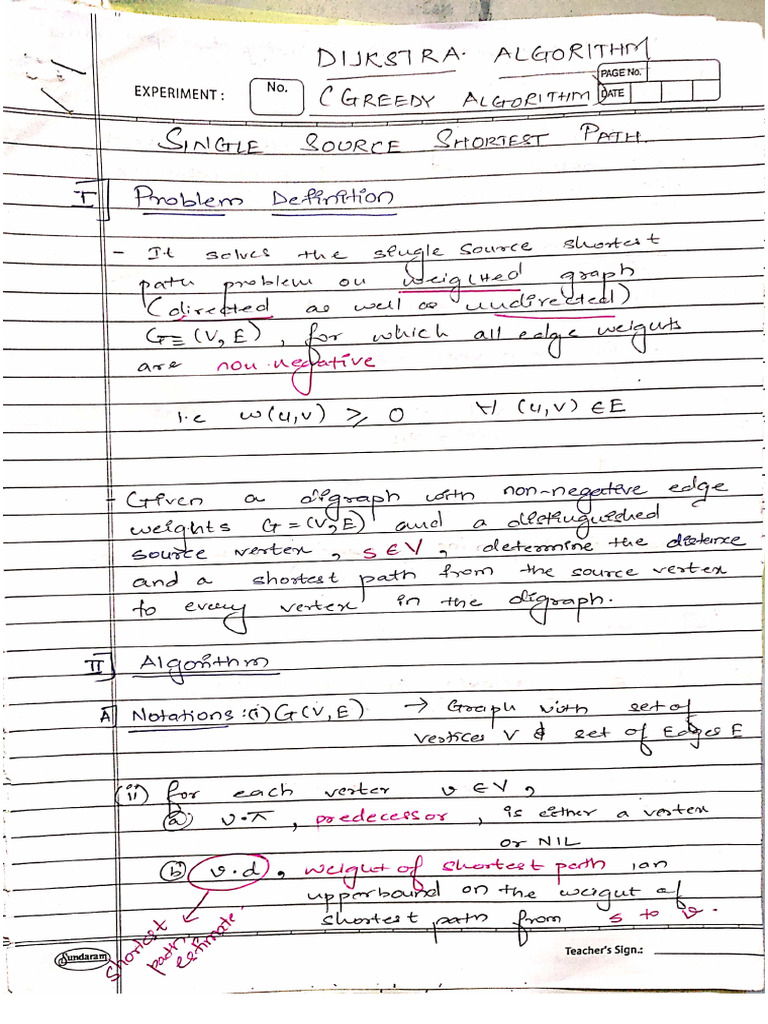 DIJKSTRA ALGORITHM
EXPERIMENT : No. (GREEDY ALGORITHM) PAGE No.
DATE
SINGLE SOURCE SHORTEST PATH.
I] Problem Definition
- It solves the single source shortest
path problem on weighted graph
(directed as well as undirected)
G = (V, E), for which all edge weights
are non-negative
i.e w(u,v) ≥ 0 ∀ (u,v) ∈ E
- Given a digraph with non-negative edge
weights G = (V, E) and a distinguished
source vertex, s ∈ V, determine the distance
and a shortest path from the source vertex
to every vertex in the digraph.
II] Algorithm
A] Notations : (i) G(V, E) → Graph with set of
vertices V & set of Edges E
(ii) for each vertex v ∈ V,
(a) v.π, predecessor, is either a vertex
or NIL
(b) v.d, weight of shortest path, an
upperbound on the weight of
shortest path from s to v.
shortest
path
estimate
Sundaram Teacher's Sign.: